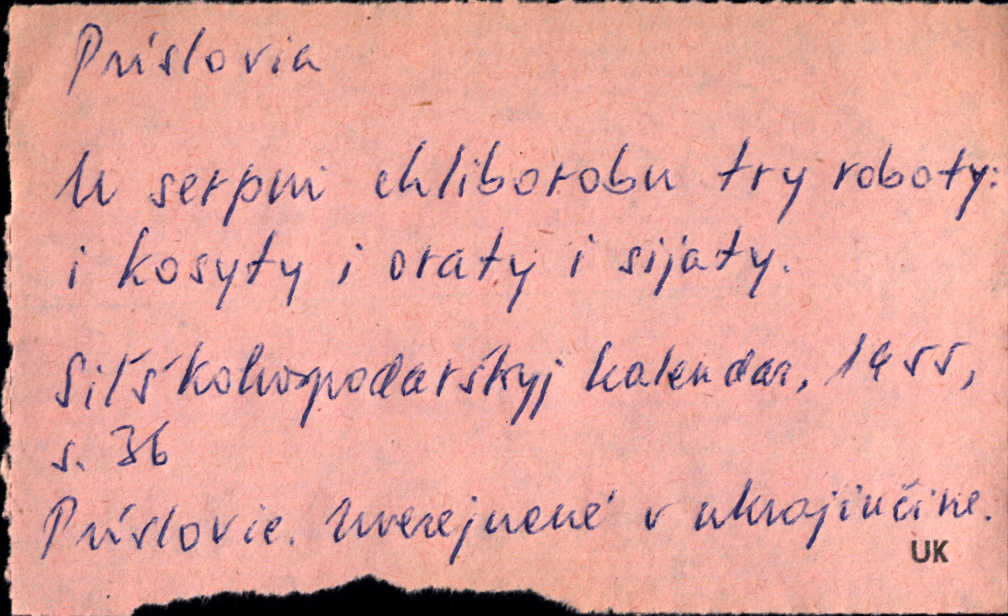 Príslovia
U serpni chliborobu try roboty:
i kosyty i oraty i sijaty.
Siľśkohospodarśkyj kalendar, 1955,
s. 36
Príslovie. Uverejnené v ukrajinčine.
UK